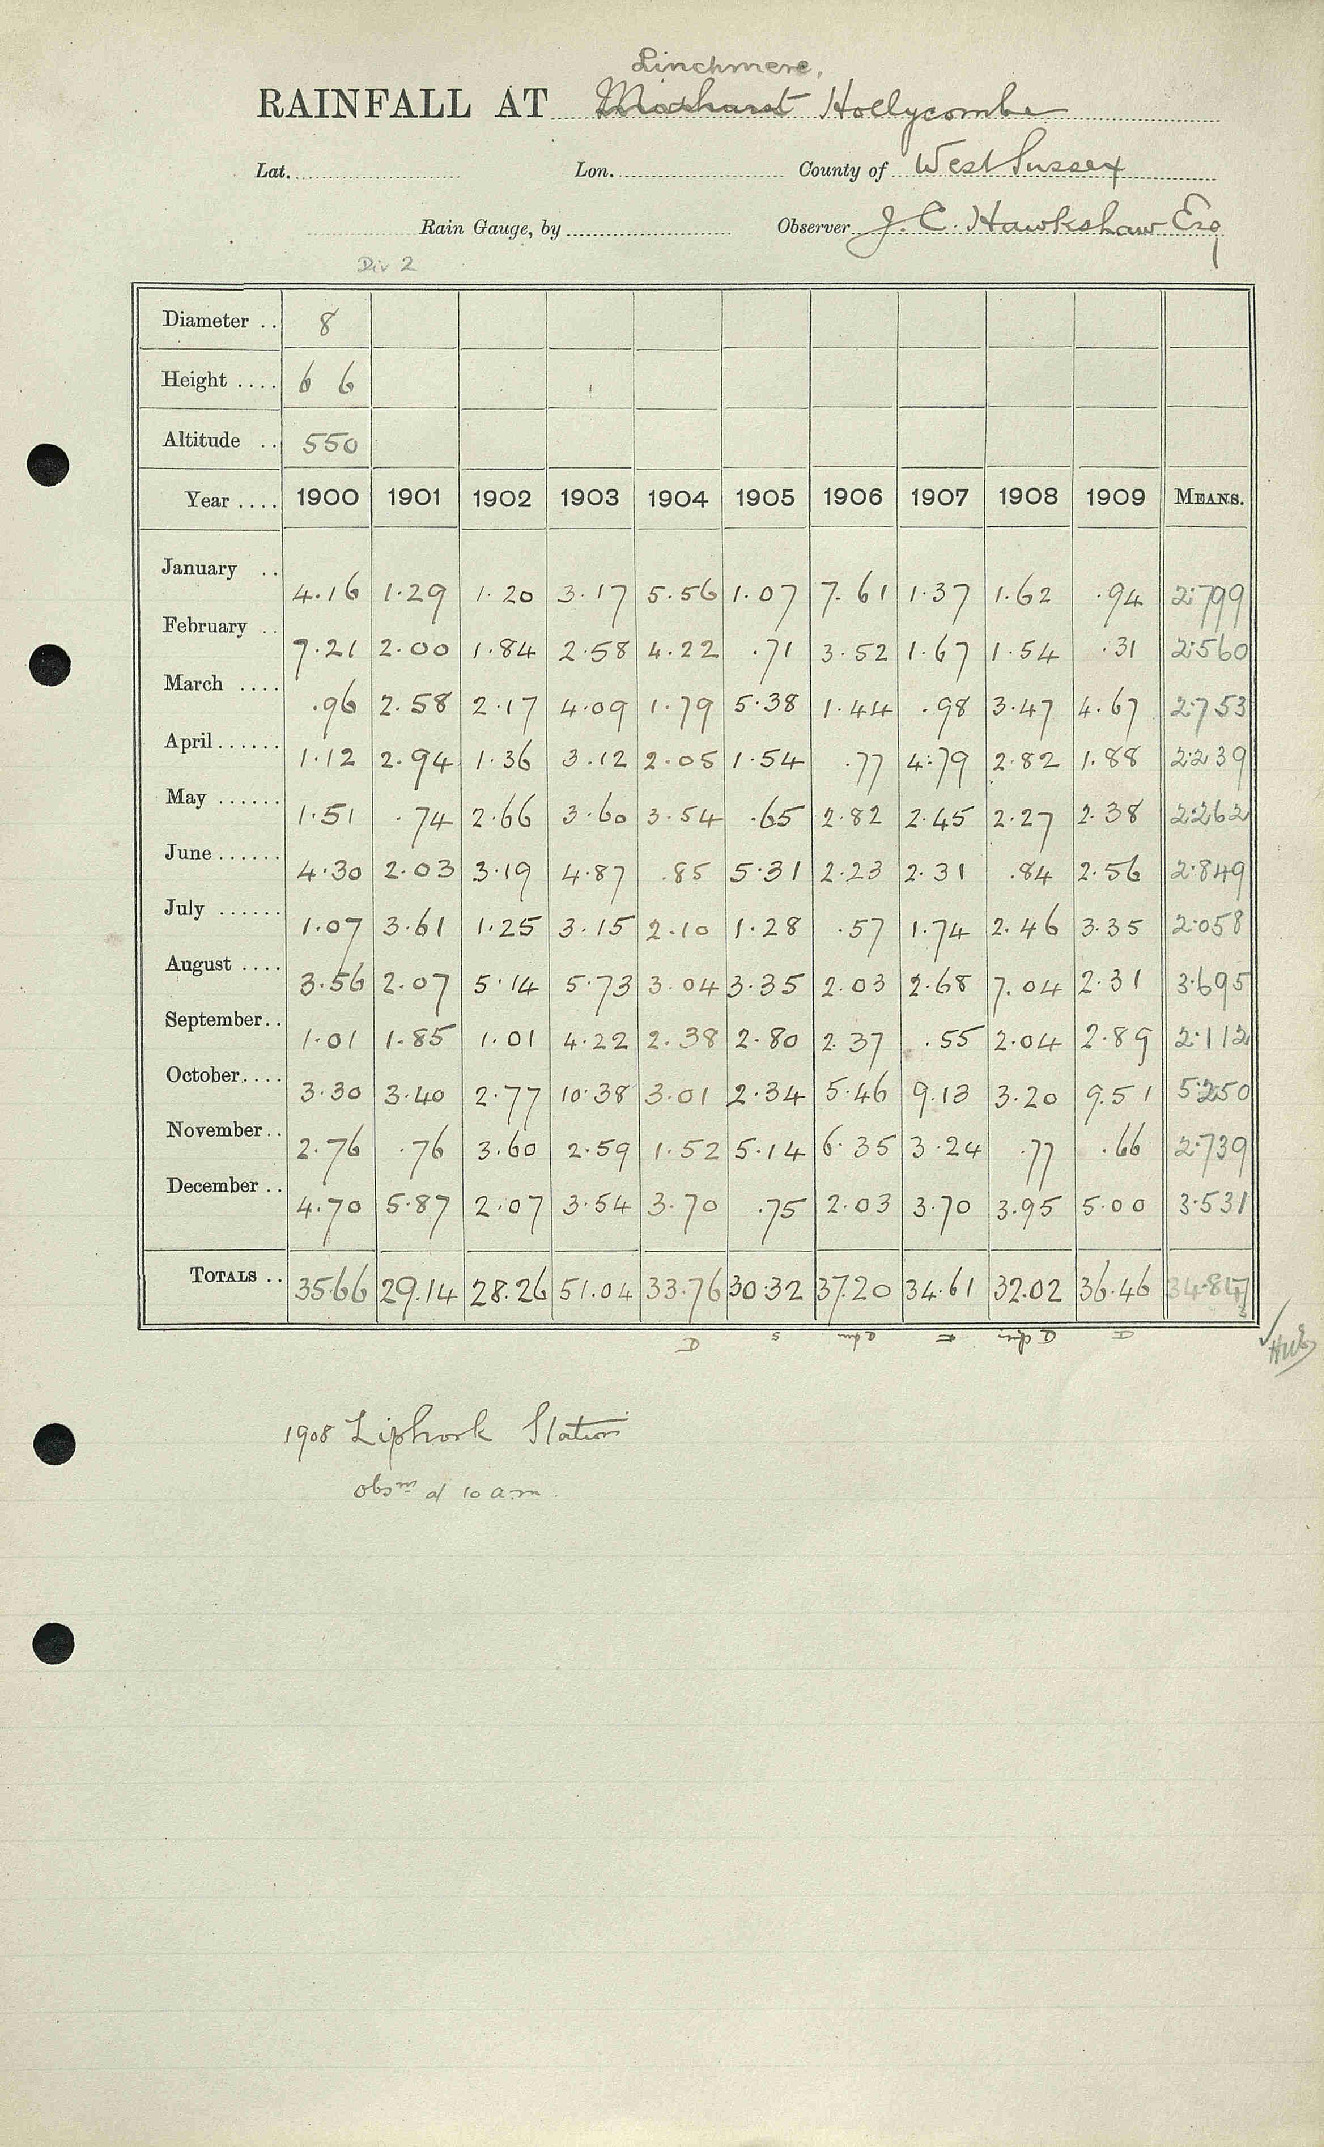 Linchmere,
RAINFALL AT Midhurst Hollycombe
Lat. Lon. County of West Sussex
Rain Gauge, by Observer J. C. Hawkshaw Esq
Div 2
Diameter .. 8
Height .... 6 6
Altitude .. 550
Year .... 1900 1901 1902 1903 1904 1905 1906 1907 1908 1909 MEANS.
January .. 4.16 1.29 1.20 3.17 5.56 1.07 7.61 1.37 1.62 .94 2.799
February .. 7.21 2.00 1.84 2.58 4.22 .71 3.52 1.67 1.54 .31 2.560
March .... .96 2.58 2.17 4.09 1.79 5.38 1.44 .98 3.47 4.67 2.753
April ...... 1.12 2.94 1.36 3.12 2.05 1.54 .77 4.79 2.82 1.88 2.239
May ...... 1.51 .74 2.66 3.60 3.54 .65 2.82 2.45 2.27 2.38 2.262
June ...... 4.30 2.03 3.19 4.87 .85 5.31 2.23 2.31 .84 2.56 2.849
July ...... 1.07 3.61 1.25 3.15 2.10 1.28 .57 1.74 2.46 3.35 2.058
August .... 3.56 2.07 5.14 5.73 3.04 3.35 2.03 2.68 7.04 2.31 3.695
September.. 1.01 1.85 1.01 4.22 2.38 2.80 2.37 .55 2.04 2.89 2.112
October.... 3.30 3.40 2.77 10.38 3.01 2.34 5.46 9.13 3.20 9.51 5.250
November.. 2.76 .76 3.60 2.59 1.52 5.14 6.35 3.24 .77 .66 2.739
December .. 4.70 5.87 2.07 3.54 3.70 .75 2.03 3.70 3.95 5.00 3.531
TOTALS .. 35.66 29.14 28.26 51.04 33.76 30.32 37.20 34.61 32.02 36.46 34.847
1908 Liphook Station
obsn at 10 a.m.